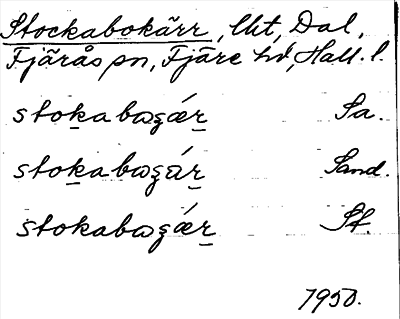 Stockabokärr, lkt, Dal,
Fjärås sn, Fjäre hd, Hall. l.
stoka bωʂǽr Sa.
stoka bωʂár Sand.
stoka bωʂǽr St.
1950.